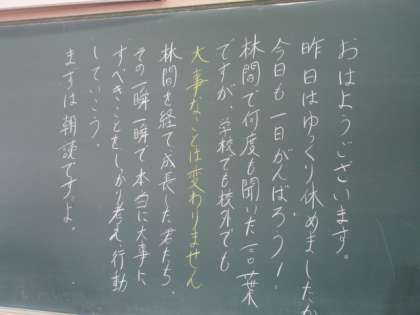 おはようございます。
昨日はゆっくり休めましたか
今日も一日がんばろう!
林間で何度も聞いた言葉
ですが、学校でも校外でも
大事なことは変わりません
林間を経て、成長した君たち。
その一瞬一瞬で本当に大事に
すべきことをしっかり考え、行動
していこう。
まずは朝読ですよ。